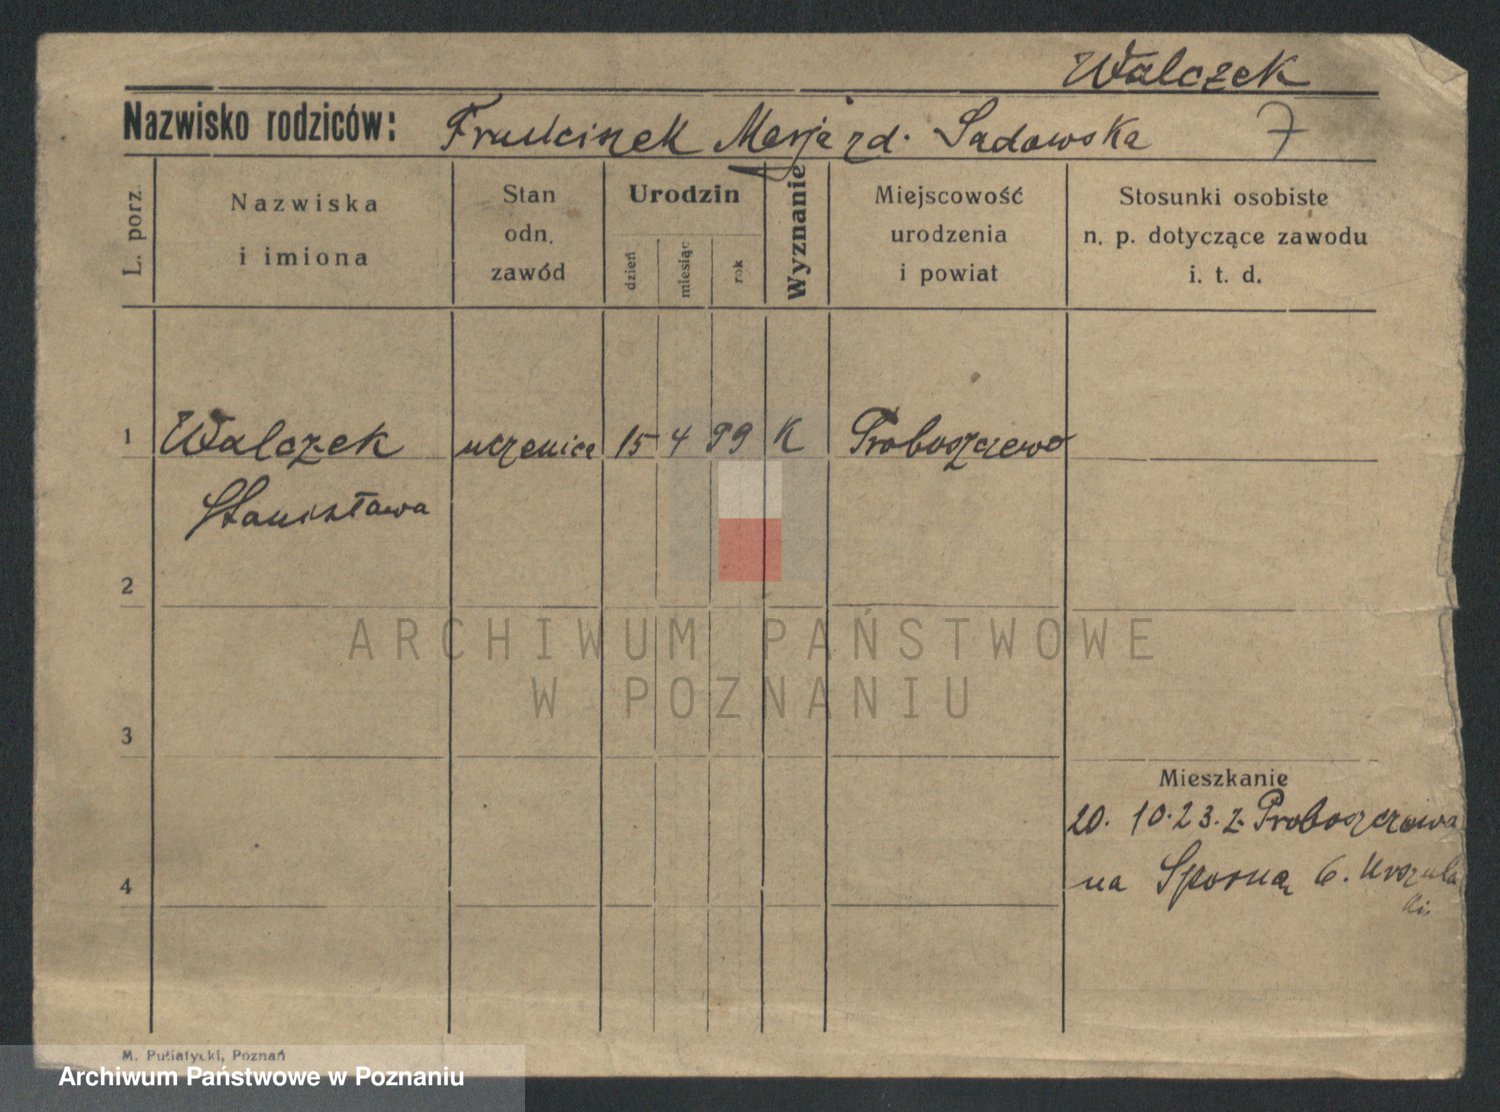 Walczek
Nazwisko rodziców: Franciszek Marja zd. Sadowska 7
L. porz.
Nazwiska
i imiona
Stan
odn.
zawód
Urodzin
dzień
miesiąc
rok
Wyznanie
Miejscowość
urodzenia
i powiat
Stosunki osobiste
n. p. dotyczące zawodu
i. t. d.
1 Walczek uczenica 15 4 99 K Proboszczewo
Stanisława
2
3
4
Mieszkanie
20. 10. 23. z. Proboszczewa
na Sporną 6. Urszula
ARCHIWUM PAŃSTWOWE
W POZNANIU
M. Putiatycki, Poznań
Archiwum Państwowe w Poznaniu